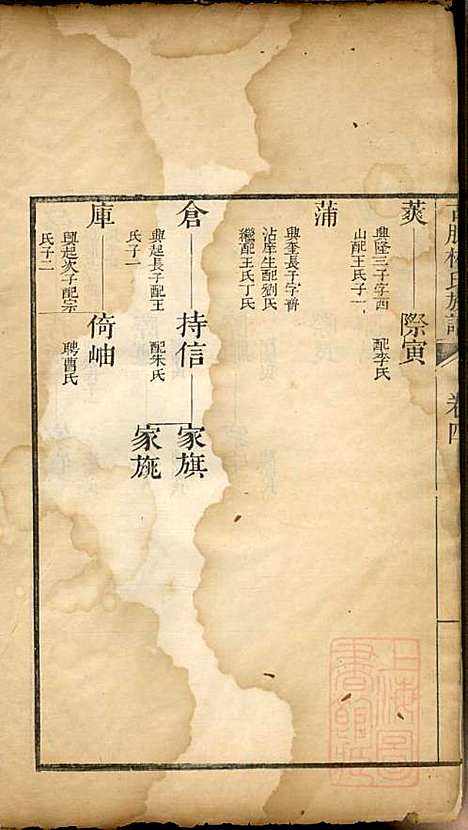 林氏族譜 卷四 一
莢 際寅
興隆三子字西
山配王氏子一
配李氏
蒲
興奎長子字普
沾庠生配劉氏
繼配王氏丁氏
倉 持信 家旗
興起長子配王
氏子一
配朱氏
家旐
庫 倚岫
興起次子配宗
氏子二
聘曹氏
上海圖
書館藏